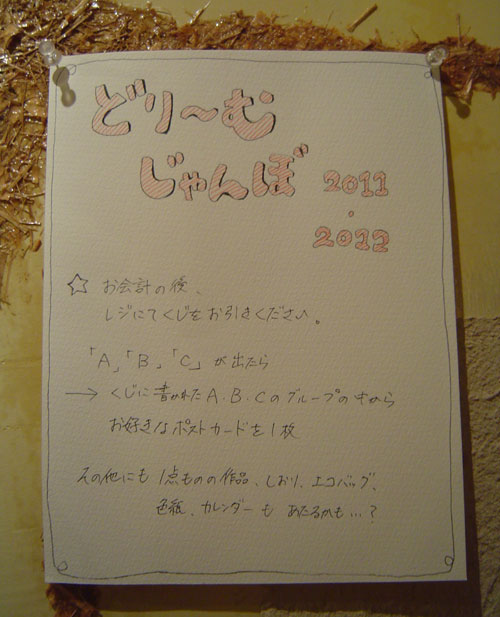 どり〜む
じゃんぼ 2011
・
2012
☆ お会計の後、
レジにてくじをお引きください。
「A」「B」「C」が出たら
→ くじに書かれたA.B.Cのグループの中から
お好きなポストカードを1枚
その他にも 1点ものの作品、しおり、エコバッグ、
色紙、カレンダーも あたるかも…?